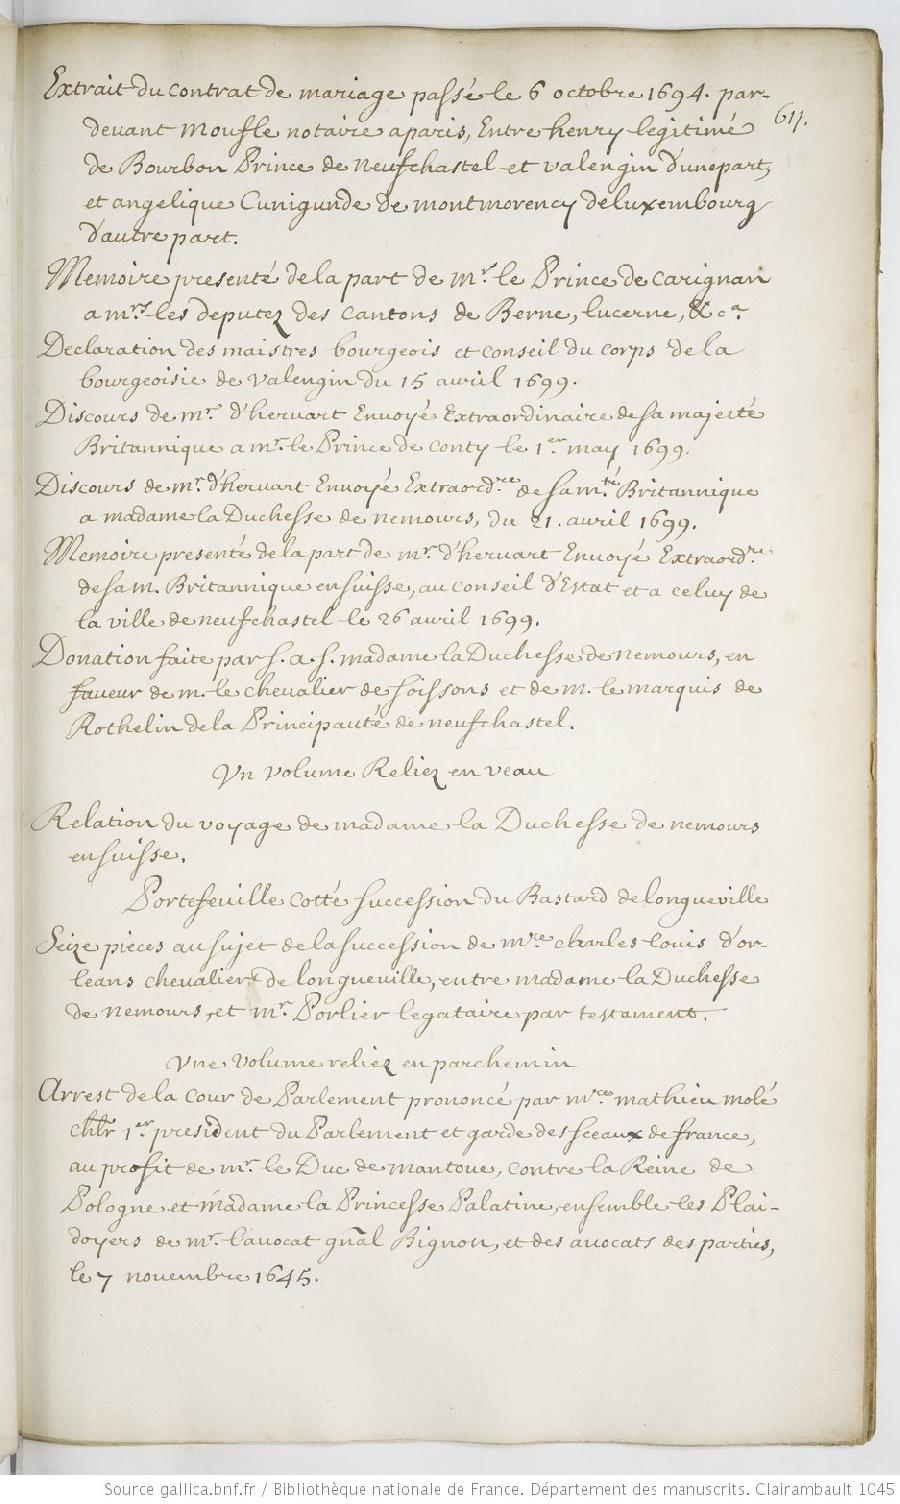 Extrait du contrat de mariage passé le 6 octobre 1694. par-
611.
deuant Moufle notaire a paris, Entre henry legitimé
de Bourbon Prince de neufchastel et valengin d'une part,
et angelique Cunigunde de montmorency de luxembourg
d'autre part.
Memoire presenté de la part de mr. le Prince de Carignan
a mrs. les deputez des Cantons de Berne, lucerne, & ca.
Declaration des maistres bourgeois et conseil du corps de la
bourgeoisie de valengin du 15 auril 1699.
Discours de mr. d'heruart Enuoyé Extraordinaire de sa majesté
Britannique a mr. le Prince de conty le 1er may 1699.
Discours de mr. d'heruart Enuoyé Extraordre. de sa mté. Britannique
a madame la Duchesse de nemours, du 21. auril 1699.
Memoire presenté de la part de mr. d'heruart Enuoyé Extraordre.
de sa m. Britannique en suisse, au Conseil d'Estat et a celuy de
la ville de neufchastel le 26 auril 1699.
Donation faite par s. a. s. madame la Duchesse de nemours, en
faueur de m. le cheualier de soissons et de m. le marquis de
Rothelin de la Principauté de neufchastel.
Vn volume Reliez en veau
Relation du voyage de madame la Duchesse de nemours
en suisse.
Portefeuille cotté succession du Bastard de longueville
Seize pieces au sujet de la succession de mre. charles louis d'or-
leans cheualier de longueville, entre madame la Duchesse
de nemours, et mr. Porlier legataire par testament.
Vne volume reliez en parchemin
Arrest de la cour de Parlement prononcé par mre. mathieu molé
chlr 1er president du Parlement et garde des sceaux de france,
au profit de mr. le Duc de mantoue, contre la Reine de
Pologne et madame la Princesse Palatine, ensemble les Plai-
doyers de mr. l'auocat gnal Bignon, et des auocats des parties,
le 7 nouembre 1645.
Source gallica.bnf.fr / Bibliothèque nationale de France. Département des manuscrits. Clairambault 1045